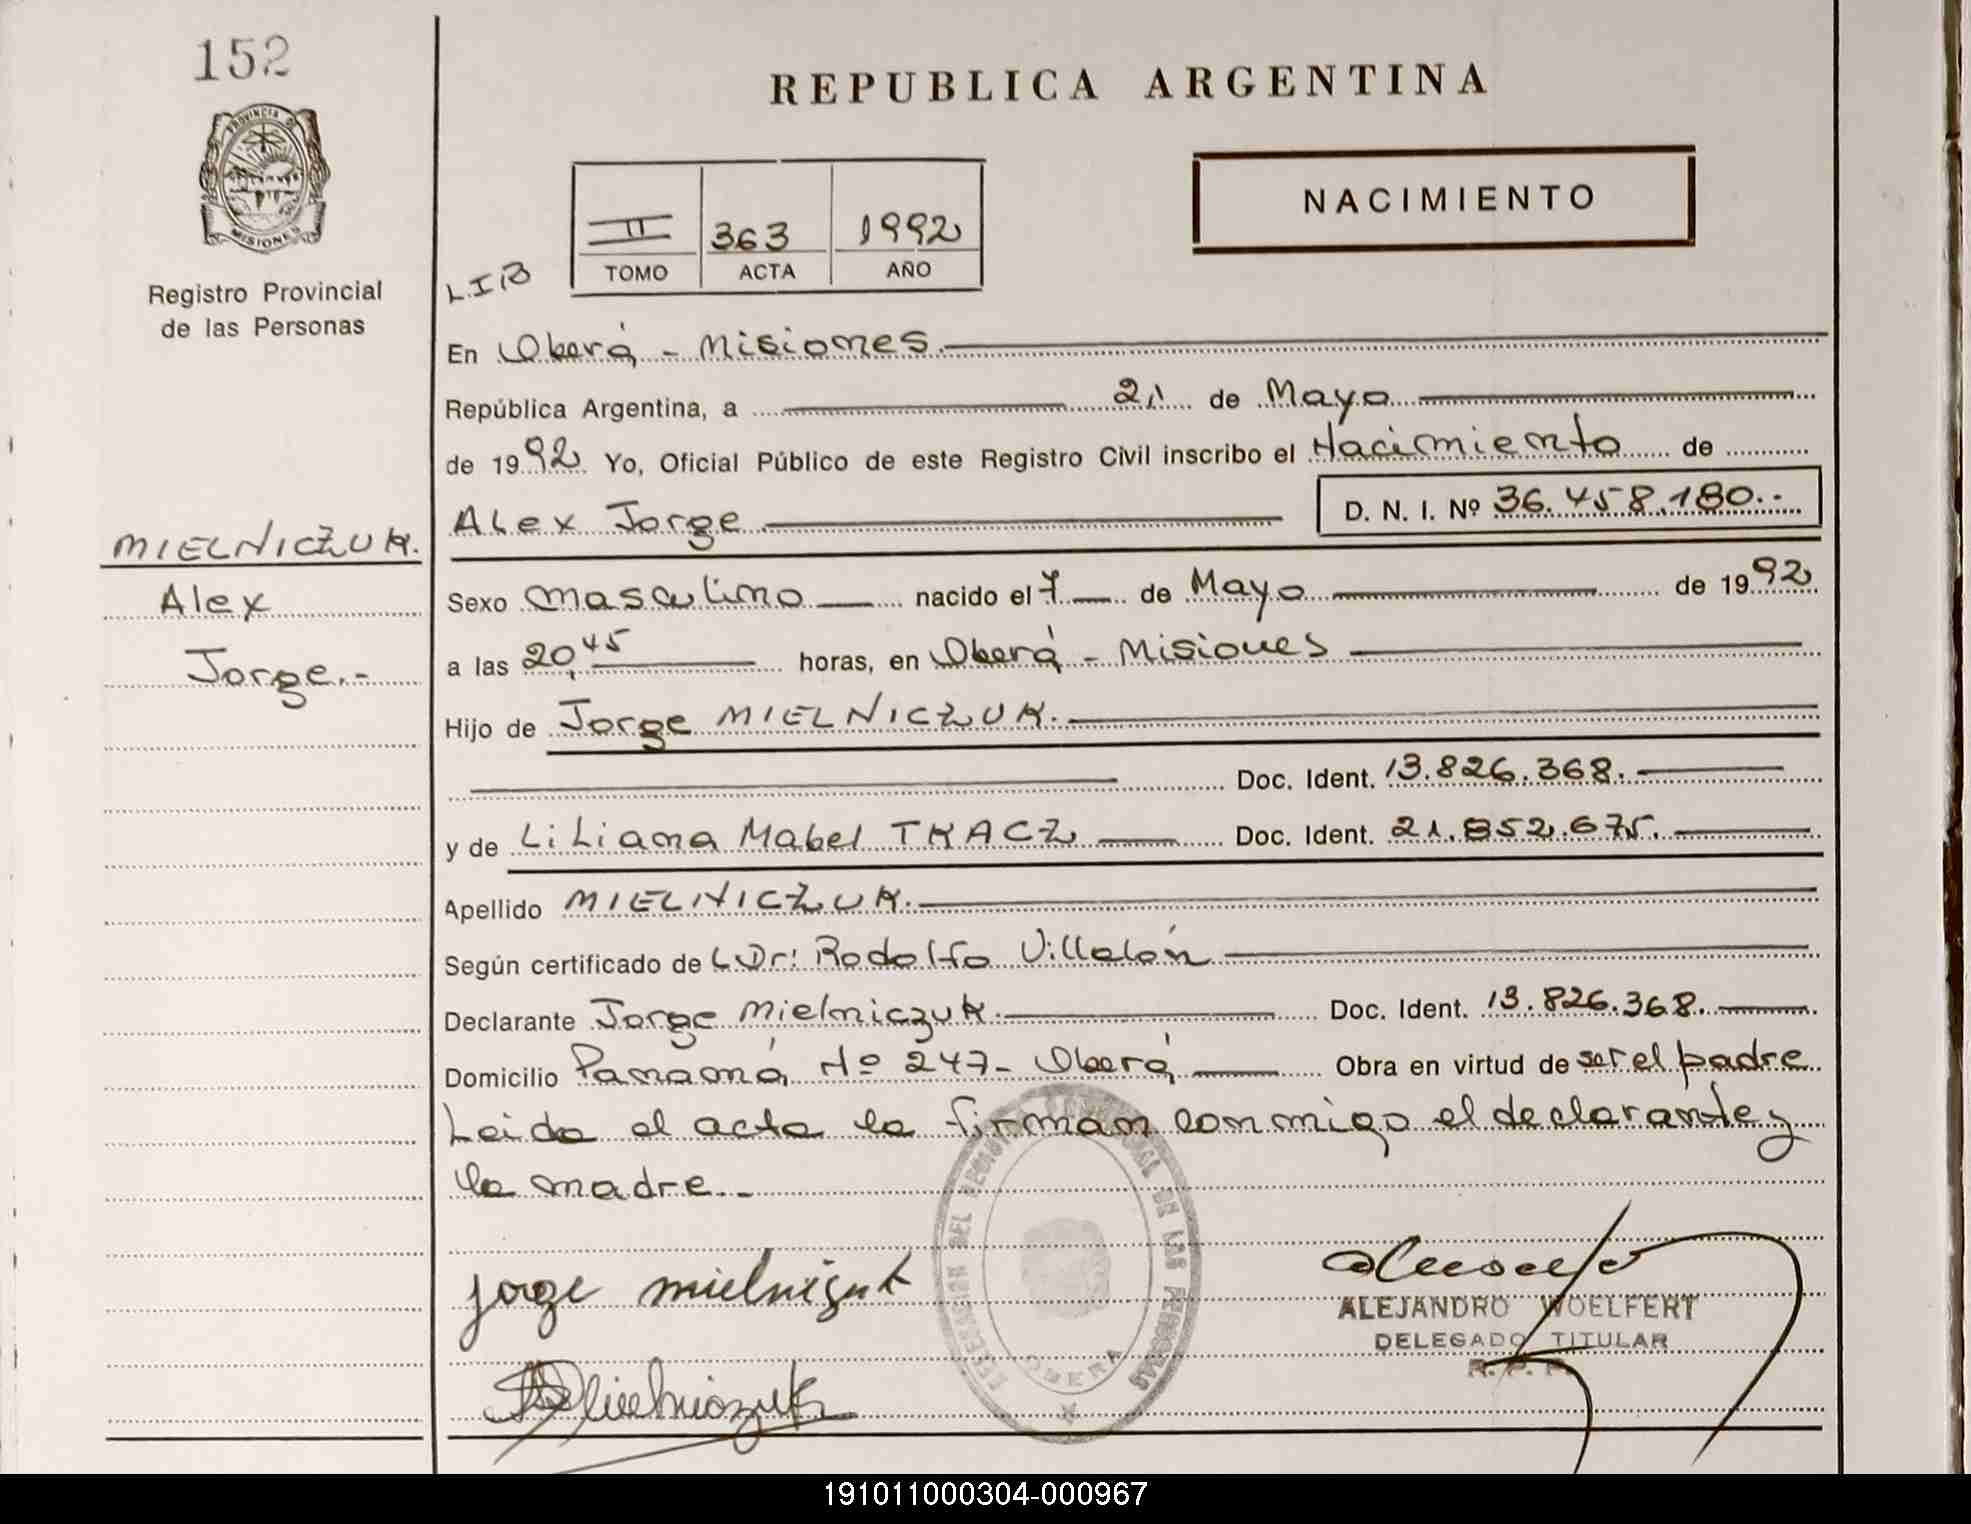 152
REPUBLICA ARGENTINA
PROVINCIA DE
MISIONES
Registro Provincial
de las Personas
II 363 1992
TOMO ACTA AÑO
NACIMIENTO
En Oberá - Misiones.
República Argentina, a 21 de Mayo
de 1992 Yo, Oficial Público de este Registro Civil inscribo el Nacimiento de
Alex Jorge D. N. I. Nº 36.458.180
MIELNICZUK.
Alex
Jorge.-
Sexo masculino nacido el 7 de Mayo de 1992
a las 20,45 horas, en Oberá - Misiones
Hijo de Jorge MIELNICZUK.
Doc. Ident. 13.826.368.
y de Liliana Mabel TKACZ Doc. Ident. 21.852.675.
Apellido MIELNICZUK.
Según certificado de Dr: Rodolfo Villalón
Declarante Jorge Mielniczuk. Doc. Ident. 13.826.368.
Domicilio Panamá Nº 247- Oberá Obra en virtud de ser el padre
Leida el acta la firman conmigo el declarante y
la madre.-
DELEGACION DEL REGISTRO PROVINCIAL DE LAS PERSONAS
OBERA
jorge mielniczuk
Mielniczuk
ALEJANDRO WOELFERT
DELEGADO TITULAR
R. P. P.
191011000304-000967